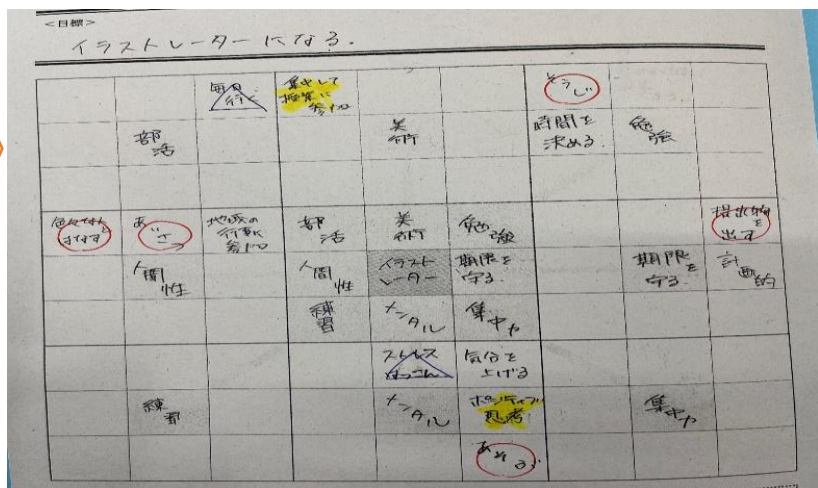 <目標>
イラストレーターになる.
毎日
行く
集中して
授業に
参加
そうじ
部
活
美
術
時間を
決める
勉
強
あ
いさつ
地域の
行動に
参加
部
活
美
術
勉
強
提出物を
出す
人間
性
人間
性
イラスト
レーター
期限を
守る
期限を
守る
計画
的
練
習
メンタル
集中力
ストレス
はっさん
気分を
上げる
練
習
メンタル
ポジティブ
思考
集中力
あそぶ